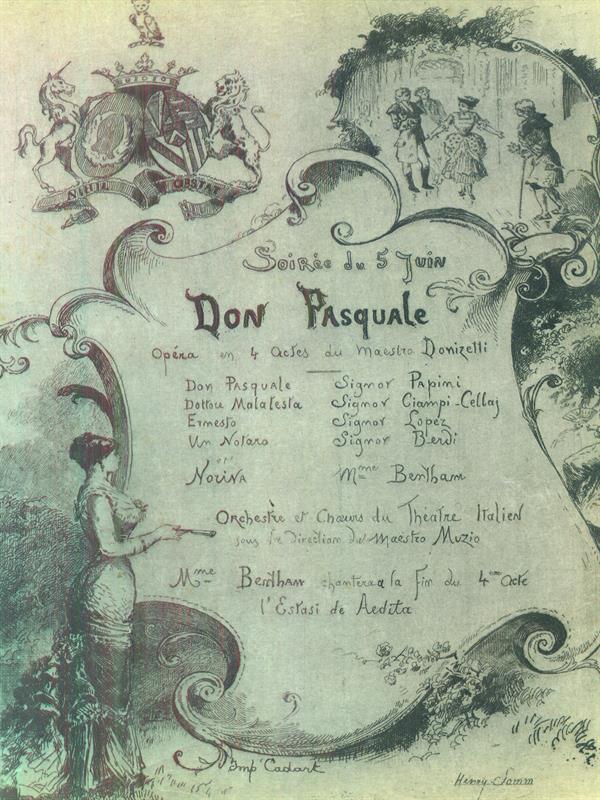 NIHIL OBSTAT
Soirée du 5 Juin
Don Pasquale
Opéra en 4 Actes du Maestro Donizetti
Don Pasquale Signor Papini
Dottore Malatesta Signor Ciampi-Cellaj
Ernesto Signor Lopez
Un Notaro Signor Berdi
et
Norina Mme Bentham
Orchestre et Chœurs du Théatre Italien
sous la direction du Maestro Muzio
Mme Bentham chantera a la Fin du 4eme Acte
l'Estasi de Aedita
Imp Cadart
Henry Somm